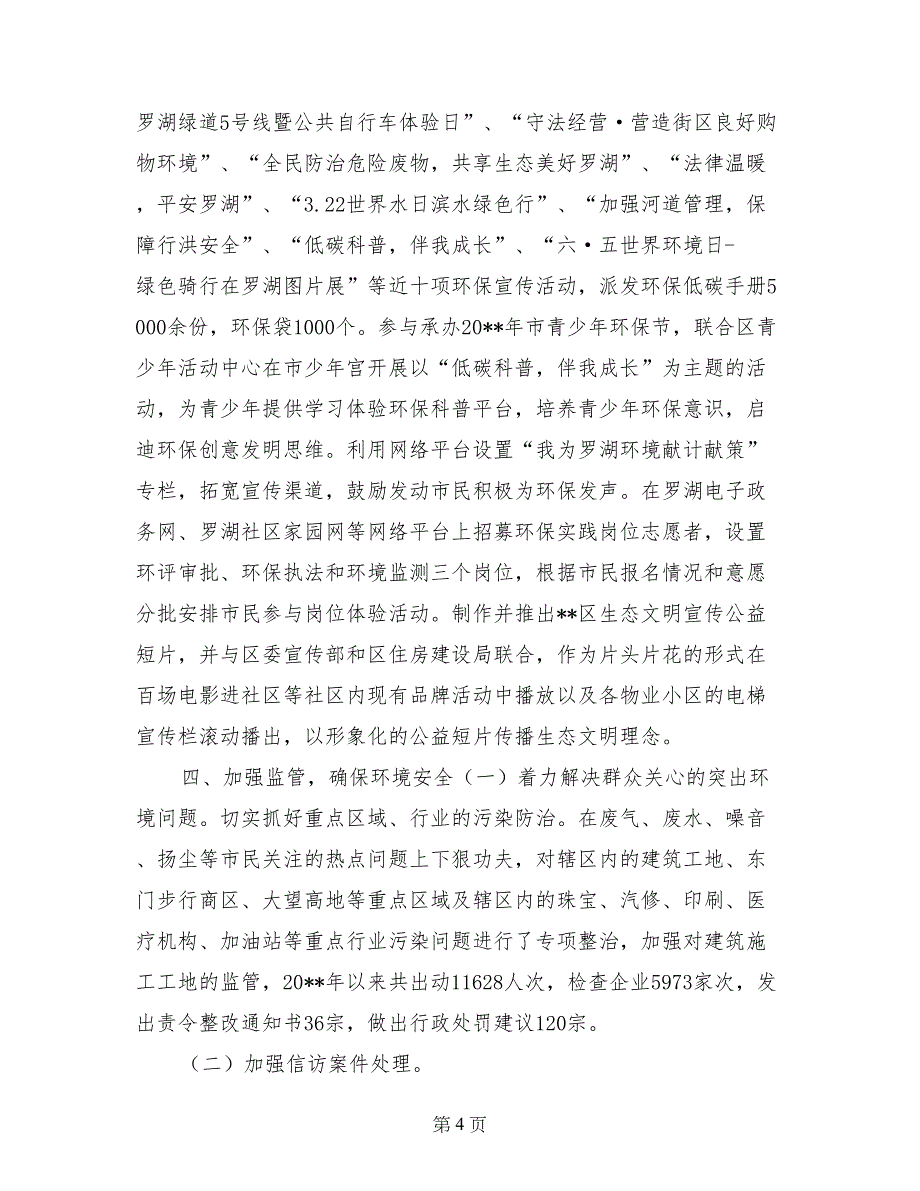 罗湖绿道5号线暨公共自行车体验日”、“守法经营·营造街区良好购
物环境”、“全民防治危险废物，共享生态美好罗湖”、“法律温暖
，平安罗湖”、“3.22世界水日滨水绿色行”、“加强河道管理，保
障行洪安全”、“低碳科普，伴我成长”、“六·五世界环境日-
绿色骑行在罗湖图片展”等近十项环保宣传活动，派发环保低碳手册5
000余份，环保袋1000个。参与承办20**年市青少年环保节，联合区青
少年活动中心在市少年宫开展以“低碳科普，伴我成长”为主题的活
动，为青少年提供学习体验环保科普平台，培养青少年环保意识，启
迪环保创意发明思维。利用网络平台设置“我为罗湖环境献计献策”
专栏，拓宽宣传渠道，鼓励发动市民积极为环保发声。在罗湖电子政
务网、罗湖社区家园网等网络平台上招募环保实践岗位志愿者，设置
环评审批、环保执法和环境监测三个岗位，根据市民报名情况和意愿
分批安排市民参与岗位体验活动。制作并推出**区生态文明宣传公益
短片，并与区委宣传部和区住房建设局联合，作为片头片花的形式在
百场电影进社区等社区内现有品牌活动中播放以及各物业小区的电梯
宣传栏滚动播出，以形象化的公益短片传播生态文明理念。
四、加强监管，确保环境安全（一）着力解决群众关心的突出环
境问题。切实抓好重点区域、行业的污染防治。在废气、废水、噪音
、扬尘等市民关注的热点问题上下狠功夫，对辖区内的建筑工地、东
门步行商区、大望高地等重点区域及辖区内的珠宝、汽修、印刷、医
疗机构、加油站等重点行业污染问题进行了专项整治，加强对建筑施
工工地的监管，20**年以来共出动11628人次，检查企业5973家次，发
出责令整改通知书36宗，做出行政处罚建议120宗。
（二）加强信访案件处理。
第 4 页